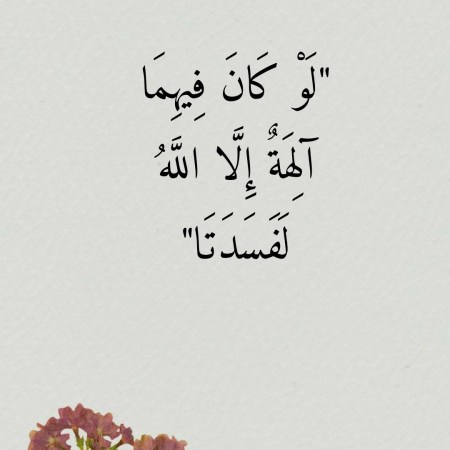 "لَوْ كَانَ فِيهِمَا
آلِهَةٌ إِلَّا اللَّهُ
لَفَسَدَتَا"